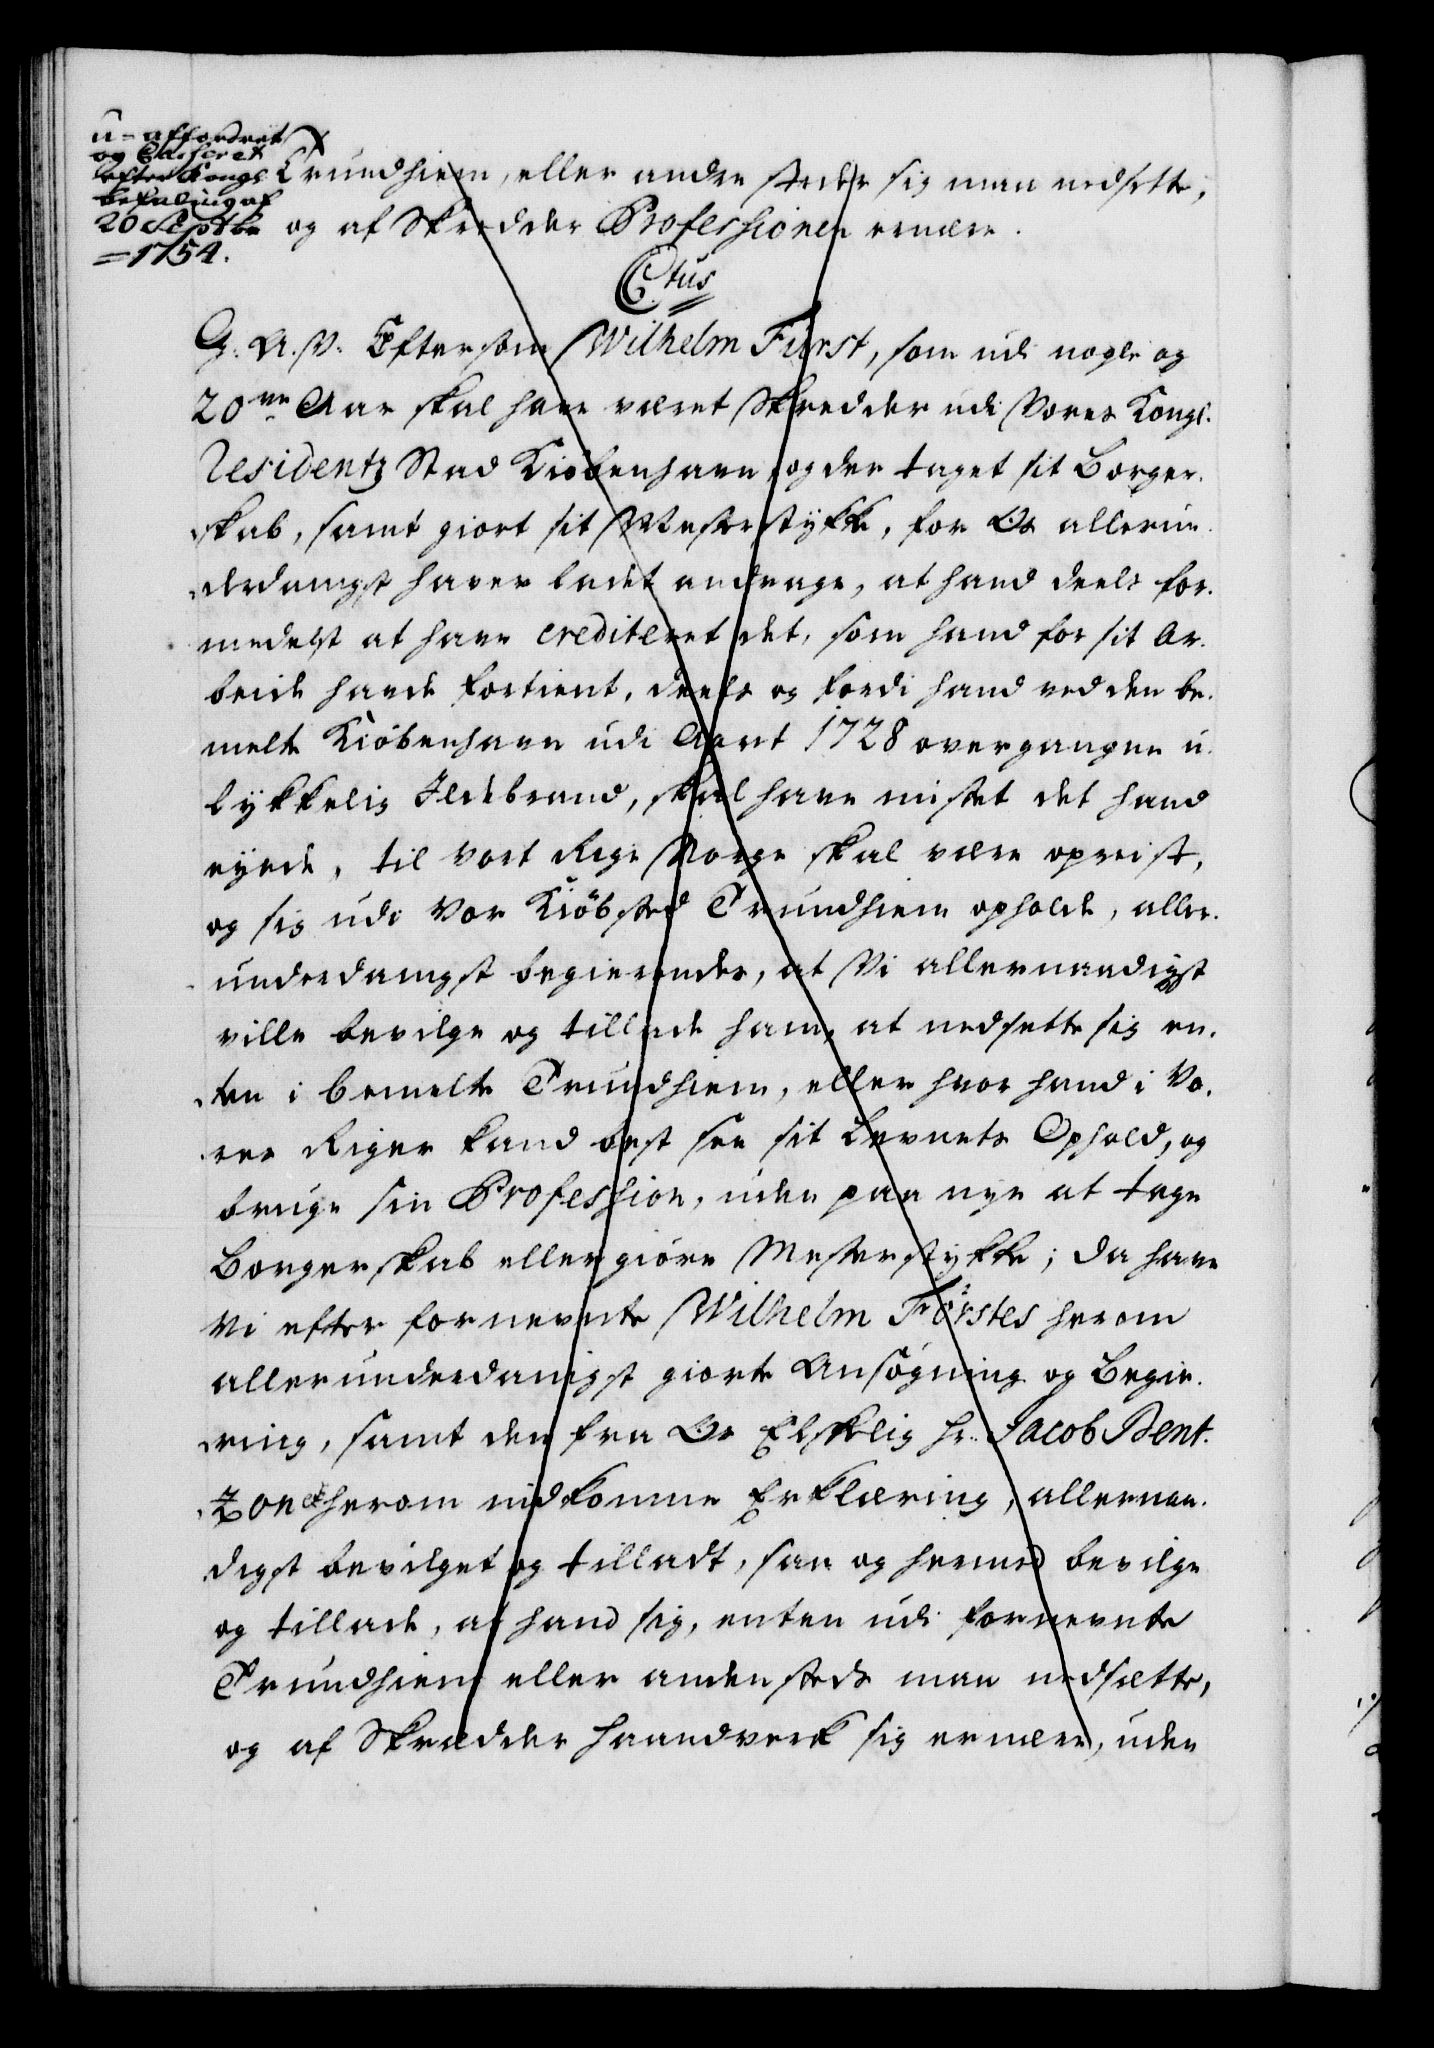 u-affordret
og Casseret
efter Kongl
befaling af
20 Septbr
=1754.
Trundhiem, eller andre steder sig maa nedsette,
og af Skredder Professionen ernære.
Ctus
G. A. V. Eftersom Wilhelm Fürst, som udi nogle og
20ve Aar skal have været Skredder udi Vores Kongl.
Residentz Stad Kiöbenhavn og der taget sit Borger-
skab, samt giort sit Mesterstykke, for Os allerun-
derdanigst haver ladet andrage, at hand deels for-
medelst at have crediteret det, som hand for sit Ar-
beide havde fortient, deels og fordi hand ved den be-
melte Kiöbenhavn udi Aaret 1728 overgangne u-
lykkelig Ildebrand, skal have mistet det hand
eyede, til vort Rige Norge skal være opreist,
og sig udi Vor Kiöbsted Trundhiem opholde, aller-
underdanigst begierendes, at Vi allernaadigst
ville bevilge og tillade ham, at nedsette sig en-
ten i bemelte Trundhiem, eller hvor hand i Vo-
res Riger kand best see sit Levnets Ophold, og
bruge sin Profession, uden paa nye at tage
Borgerskab eller giöre Mesterstykke; Da have
Vi efter fornevnte Wilhelm Fürstes herom
allerunderdanigst giorte Ansögning og Begie-
ring, samt den fra Os Elskelig Hr. Jacob Bent-
zon herom indkomne Erklæring, allernaa-
digst bevilget og tilladt, saa og hermed bevilge
og tillade, at hand sig, enten udi fornevnte
Trundhiem eller andensteds maa nedsætte,
og af Skrædder Haandverk sig ernære, uden